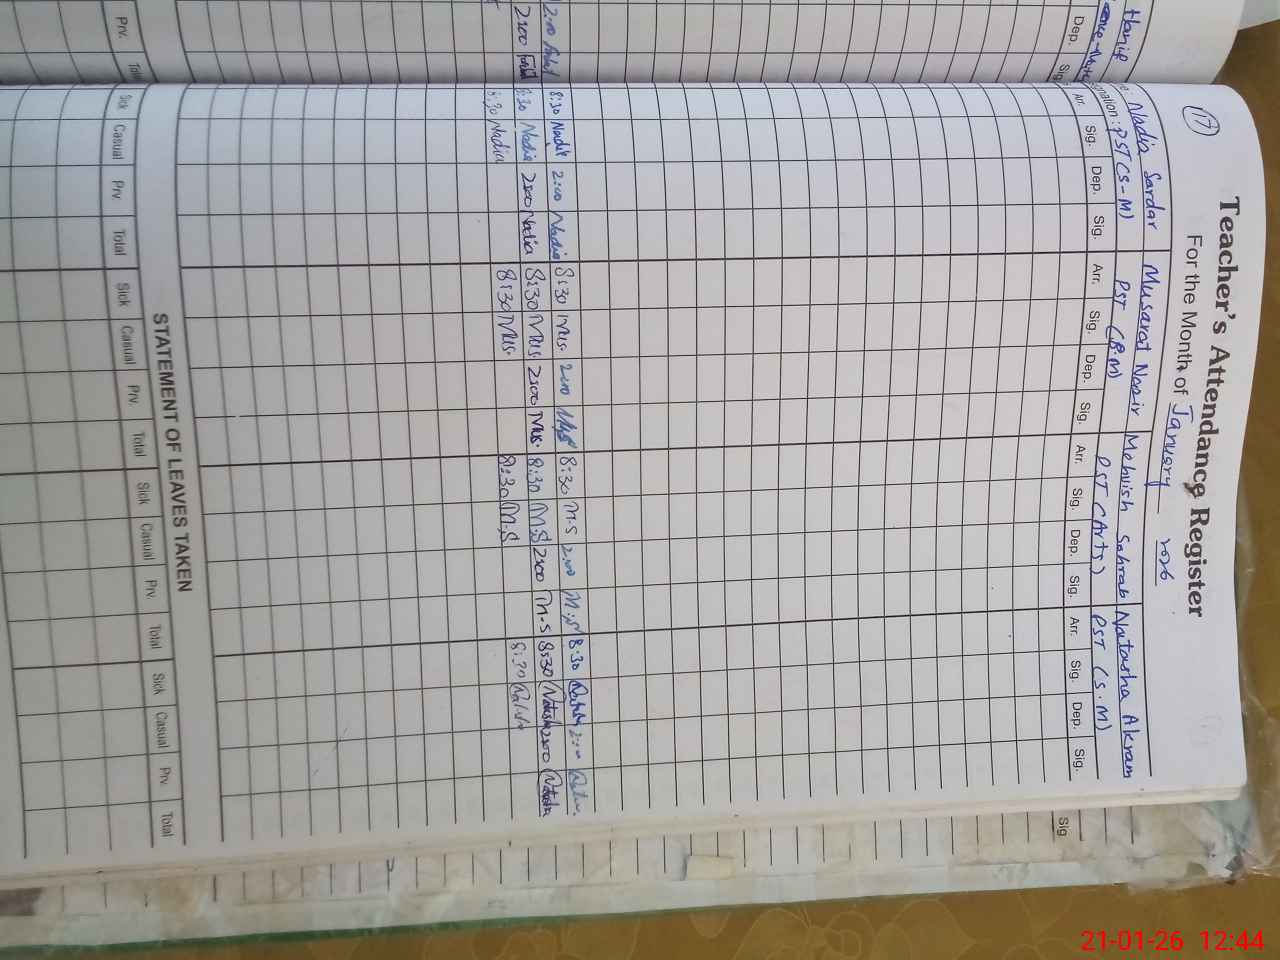 17
Teacher's Attendance Register
For the Month of January 2026
Nadia Sardar Musarat Nasir Mehvish Sohrab Natasha Akram
nation: PST (S-M) PST (B.M) PST (Arts) PST (S.M)
Arr. Sig. Dep. Sig. Arr. Sig. Dep. Sig. Arr. Sig. Dep. Sig. Arr. Sig. Dep. Sig.
8:30 Nadia 2:00 Nadia 8:30 Mus. 2:00 8:30 M.S 2:00 M.S 8:30 2:00
8:30 Nadia 2:00 Nadia 8:30 Mus. 2:00 Mus. 8:30 M.S 2:00 M.S 8:30 Natasha 2:00 Natasha
8:30 Nadia 8:30 Mus. 8:30 M.S 8:30
STATEMENT OF LEAVES TAKEN
Sick Casual Prv. Total Sick Casual Prv. Total Sick Casual Prv. Total Sick Casual Prv. Total
Dep. Sig
2:00
2:00
Prv. Total
Sig
21-01-26 12:44